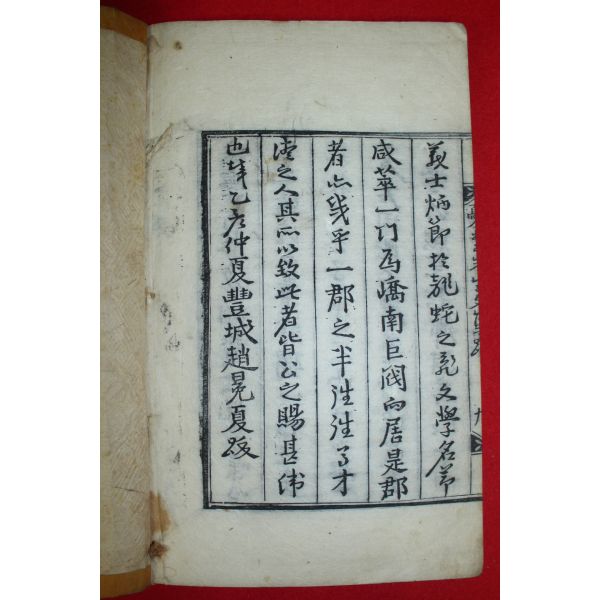 義士炳節於龍蛇之亂文學名節
咸萃一門爲嶠南巨閥而居是郡
者亦幾乎一郡之半往往多才
達之人其所以致此者皆公之賜甚偉
也哉乙亥仲夏豐城趙冕夏跋